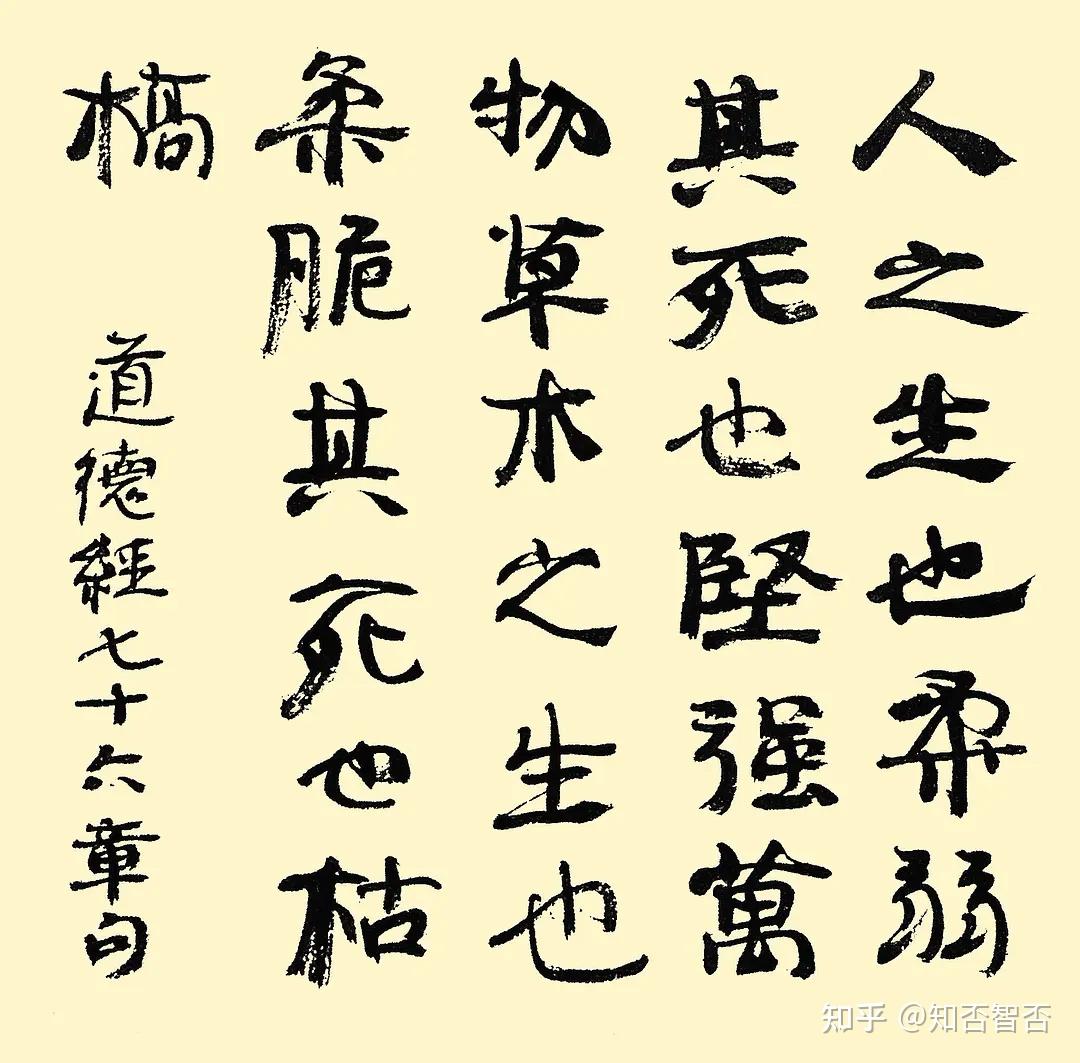 人之生也柔弱
其死也堅强萬
物草木之生也
柔脆其死也枯
槁
道德經七十六章句
知乎 @知否智否